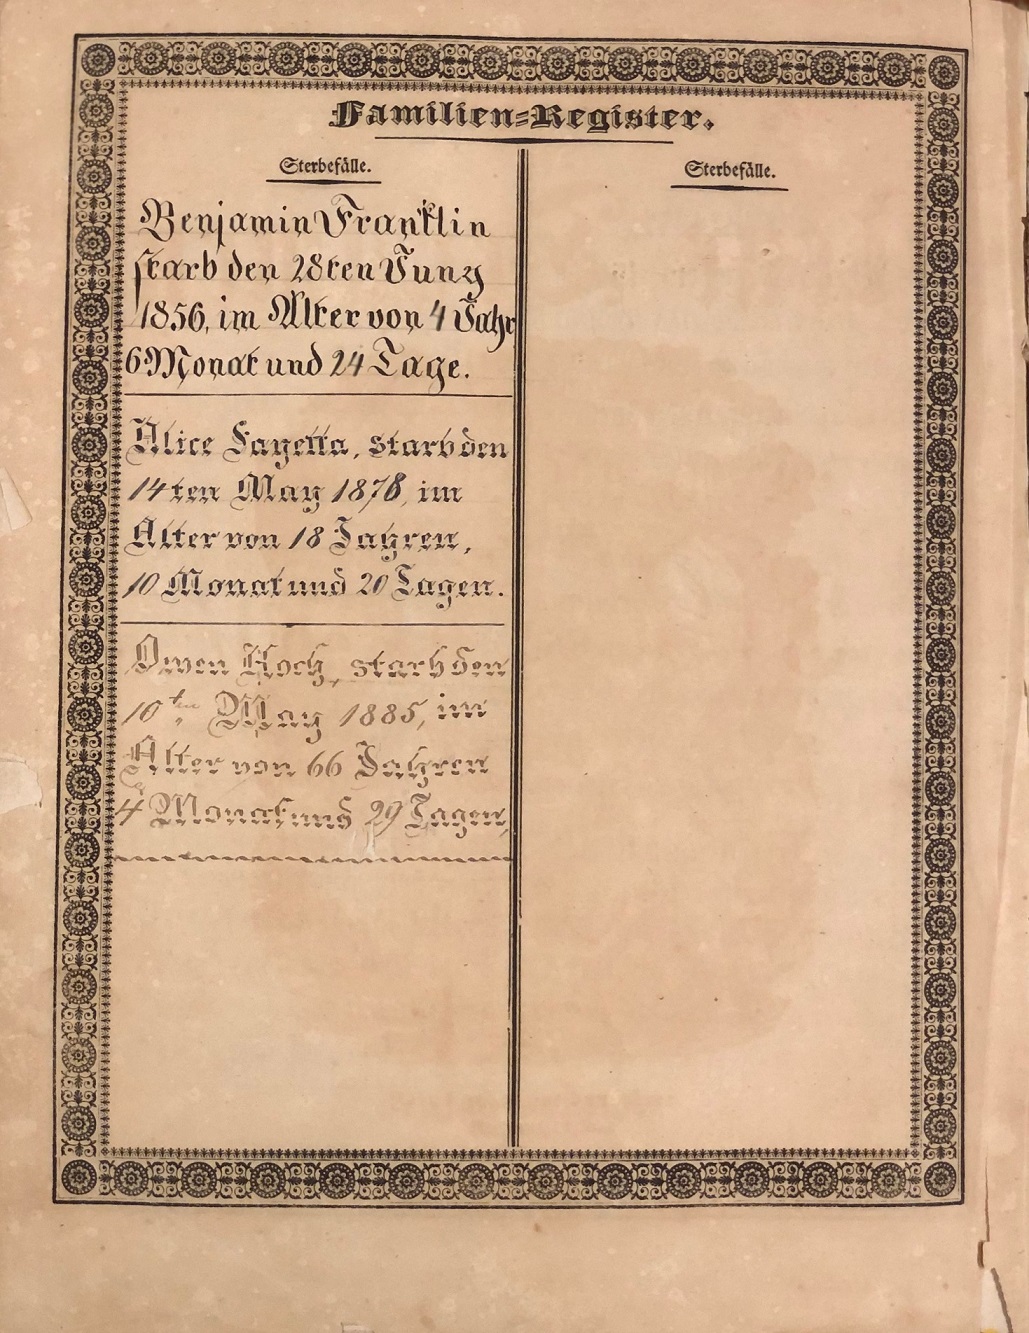 Familien-Register.
Sterbefälle.
Benjamin Franklin
starb den 28ten Juny
1856, im Alter von 4 Jahr
6 Monat und 24 Tage.
Alice Fayetta, starb den
14ten May 1878, im
Alter von 18 Jahren,
10 Monat und 20 Tagen.
Owen Koch, starb den
10ten May 1885, im
Alter von 66 Jahren
4 Monat und 29 Tagen,
Sterbefälle.